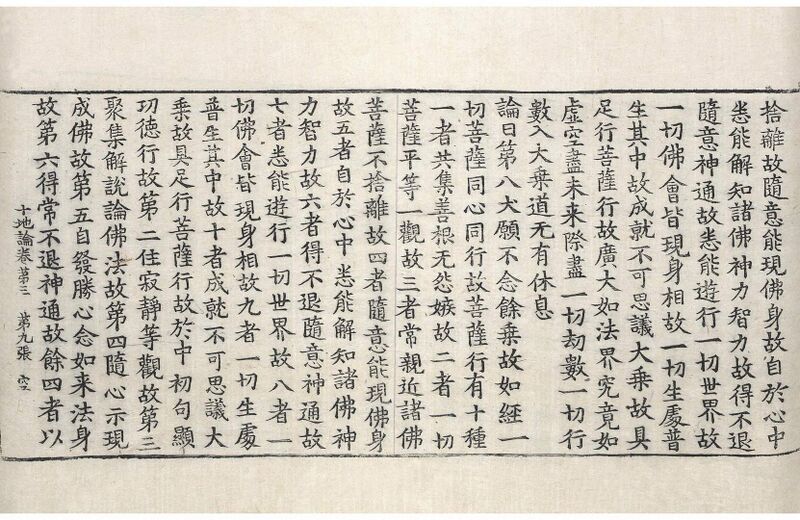 捨離故隨意能現佛身故自於心中
悉能解知諸佛神力智力故得不退
隨意神通故悉能遊行一切世界故
一切佛會皆現身相故一切生處普
生其中故成就不可思議大乗故具
足行菩薩行故廣大如法界究竟如
虛空盡未來際盡一切劫數一切行
數入大乗道无有休息
論曰第八大願不念餘乗故如經一
切菩薩同心同行故菩薩行有十種
一者共集善根无怨嫉故二者一切
菩薩平等一觀故三者常親近諸佛
菩薩不捨離故四者隨意能現佛身
故五者自於心中悉能解知諸佛神
力智力故六者得不退隨意神通故
七者悉能遊行一切世界故八者一
切佛會皆現身相故九者一切生處
普生其中故十者成就不可思議大
乗故具足行菩薩行故於中初句顯
功德行故第二住寂靜等觀故第三
聚集解說論佛法故第四隨心示現
成佛故第五自發勝心念如来法身
故第六得常不退神通故餘四者以
十地論卷第三 第九張 空